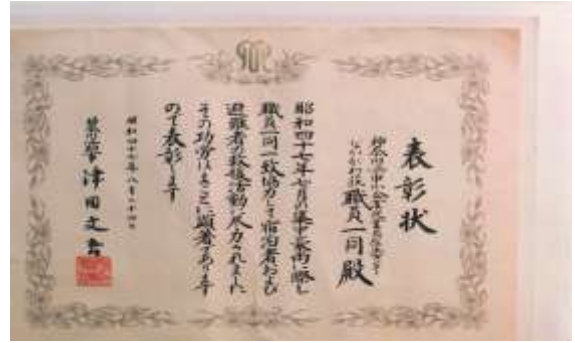 表彰状
職員一同殿
昭和四十七年七月集中豪雨に際し
職員一同一致協力して宿泊者および
避難者の救援活動に尽力されました
その功労はまことに顕著であります
ので表彰します
昭和四十七年八月二十四日
津田文吾